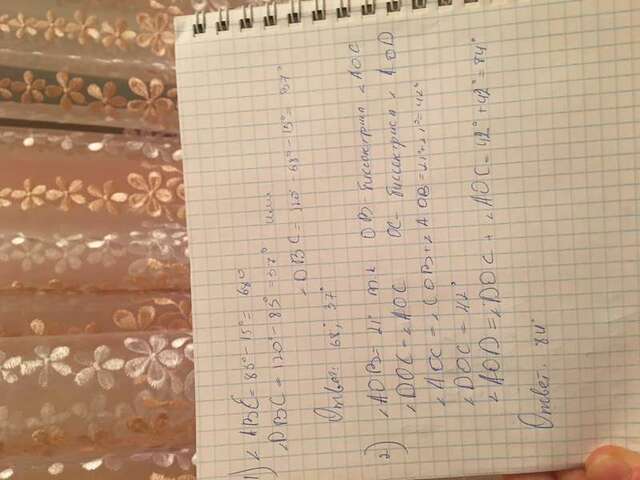 1) ∠ABE = 83° - 15° = 68°
∠DBC = 120° - 83° = 37° или
∠DBC = 120° - 68° - 15° = 37°
Ответ: 68°; 37°
2) ∠AOB = 21° т.к OB - биссектриса ∠AOC
∠DOC = ∠AOC OC - биссектриса ∠AOD
∠AOC = ∠COB + ∠AOB = 21° + 21° = 42°
∠DOC = 42°
∠AOD = ∠DOC + ∠AOC = 42° + 42° = 84°
Ответ. 84°